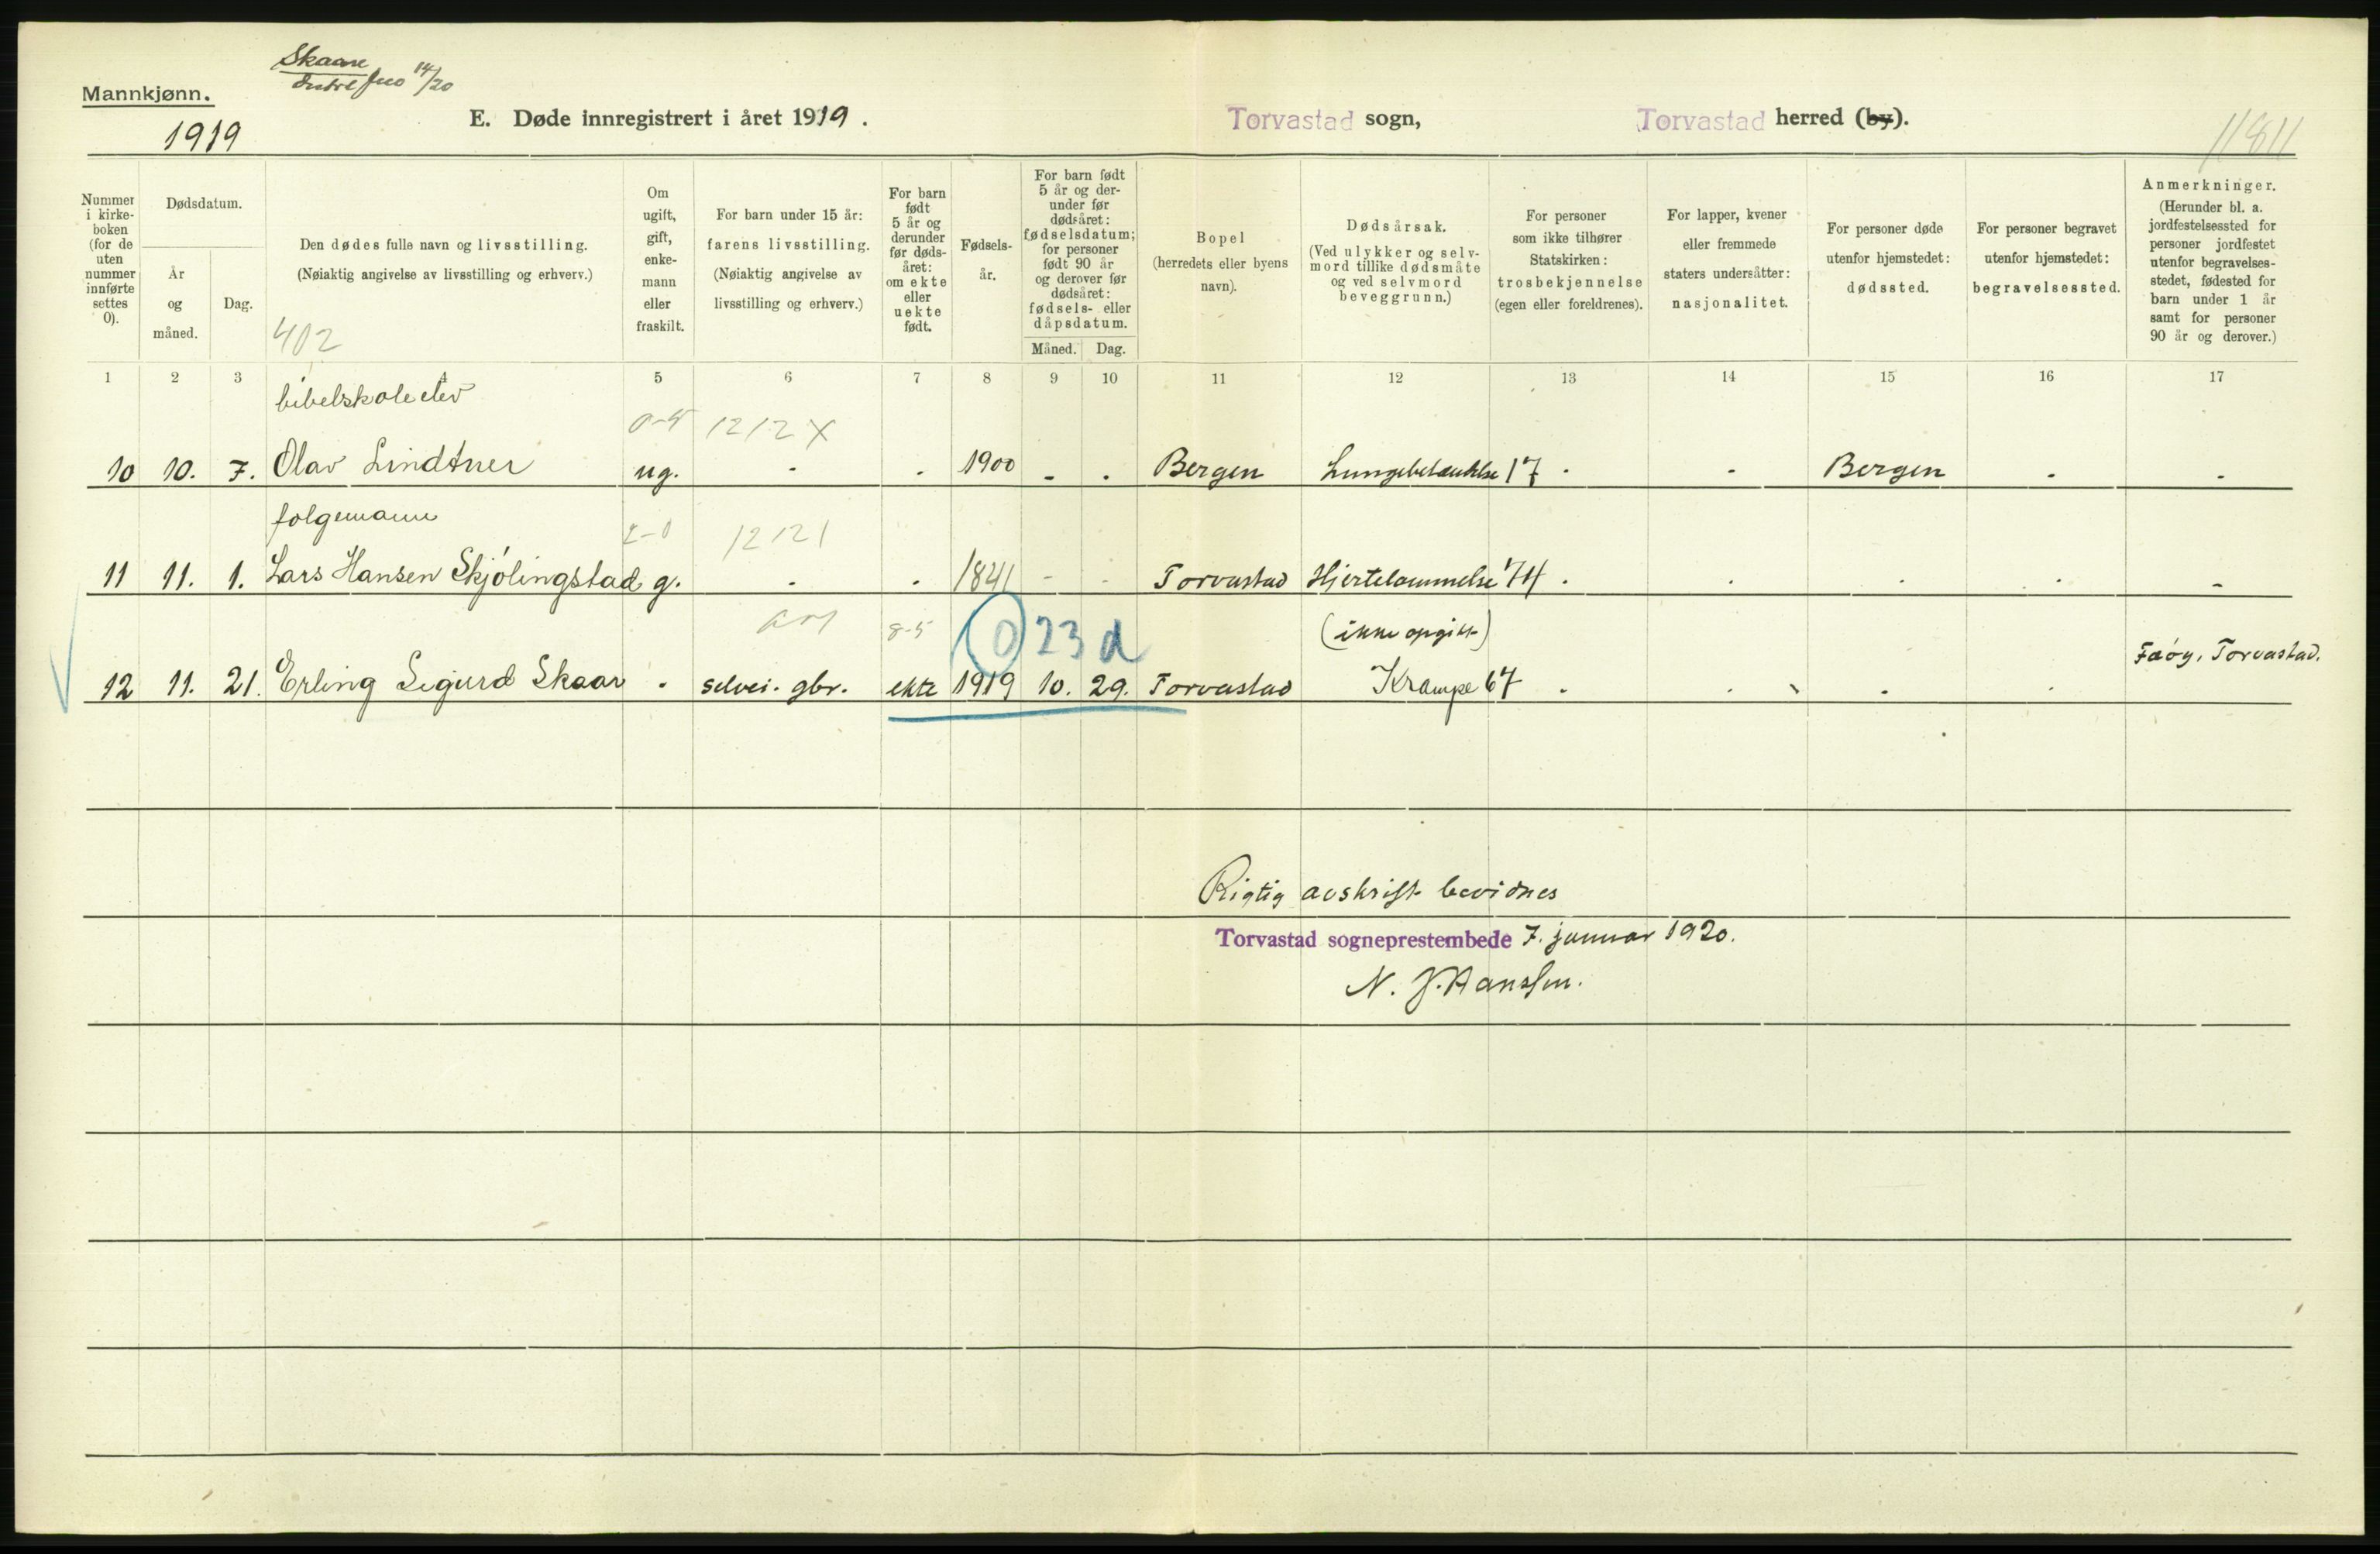 Skaare
14/20
Mannkjønn.
1919
E. Døde innregistrert i året 1919.
Torvastad sogn,
Torvastad herred (by).
11811
Nummer i kirke-boken (for de uten nummer innførte settes 0).
Dødsdatum.
År og måned.
Dag.
Den dødes fulle navn og livsstilling.
(Nøiaktig angivelse av livsstilling og erhverv.)
402
Om ugift, gift, enke-mann eller fraskilt.
For barn under 15 år: farens livsstilling. (Nøiaktig angivelse av livsstilling og erhverv.)
For barn født 5 år og derunder før døds-året: om ekte eller uekte født.
Fødsels-år.
For barn født 5 år og der-under før dødsåret: fødselsdatum; for personer født 90 år og derover før dødsåret: fødsels- eller dåpsdatum.
Måned.
Dag.
Bopel (herredets eller byens navn).
Dødsårsak. (Ved ulykker og selv-mord tillike dødsmåte og ved selvmord beveggrunn.)
For personer som ikke tilhører Statskirken: trosbekjennelse (egen eller foreldrenes).
For lapper, kvener eller fremmede staters undersåtter: nasjonalitet.
For personer døde utenfor hjemstedet: dødssted.
For personer begravet utenfor hjemstedet: begravelsessted.
Anmerkninger. (Herunder bl. a. jordfestelsessted for personer jordfestet utenfor begravelses-stedet, fødested for barn under 1 år samt for personer 90 år og derover.)
1 2 3 4 5 6 7 8 9 10 11 12 13 14 15 16 17
bibelskoleelev
0-5 1212 X
10 10. 7. Olav Lindtner ug. - . 1900 - . Bergen Lungebetændelse 17 . - Bergen - -
folgemann
1212 1
11 11. 1. Lars Hansen Skjølingstad g. . . 1841 - - Torvastad Hjertelammelse 74 . . . . -
8-5 0 23 d (ikke opgitt)
Faøy, Torvastad.
12 11. 21. Erling Sigurd Skaar . selvei. gbr. ekte 1919 10. 29. Torvastad Krampe 67 . . . .
Rigtig avskrift bevidnes
Torvastad sogneprestembede 7. januar 1920.
N. J. Hanssen.